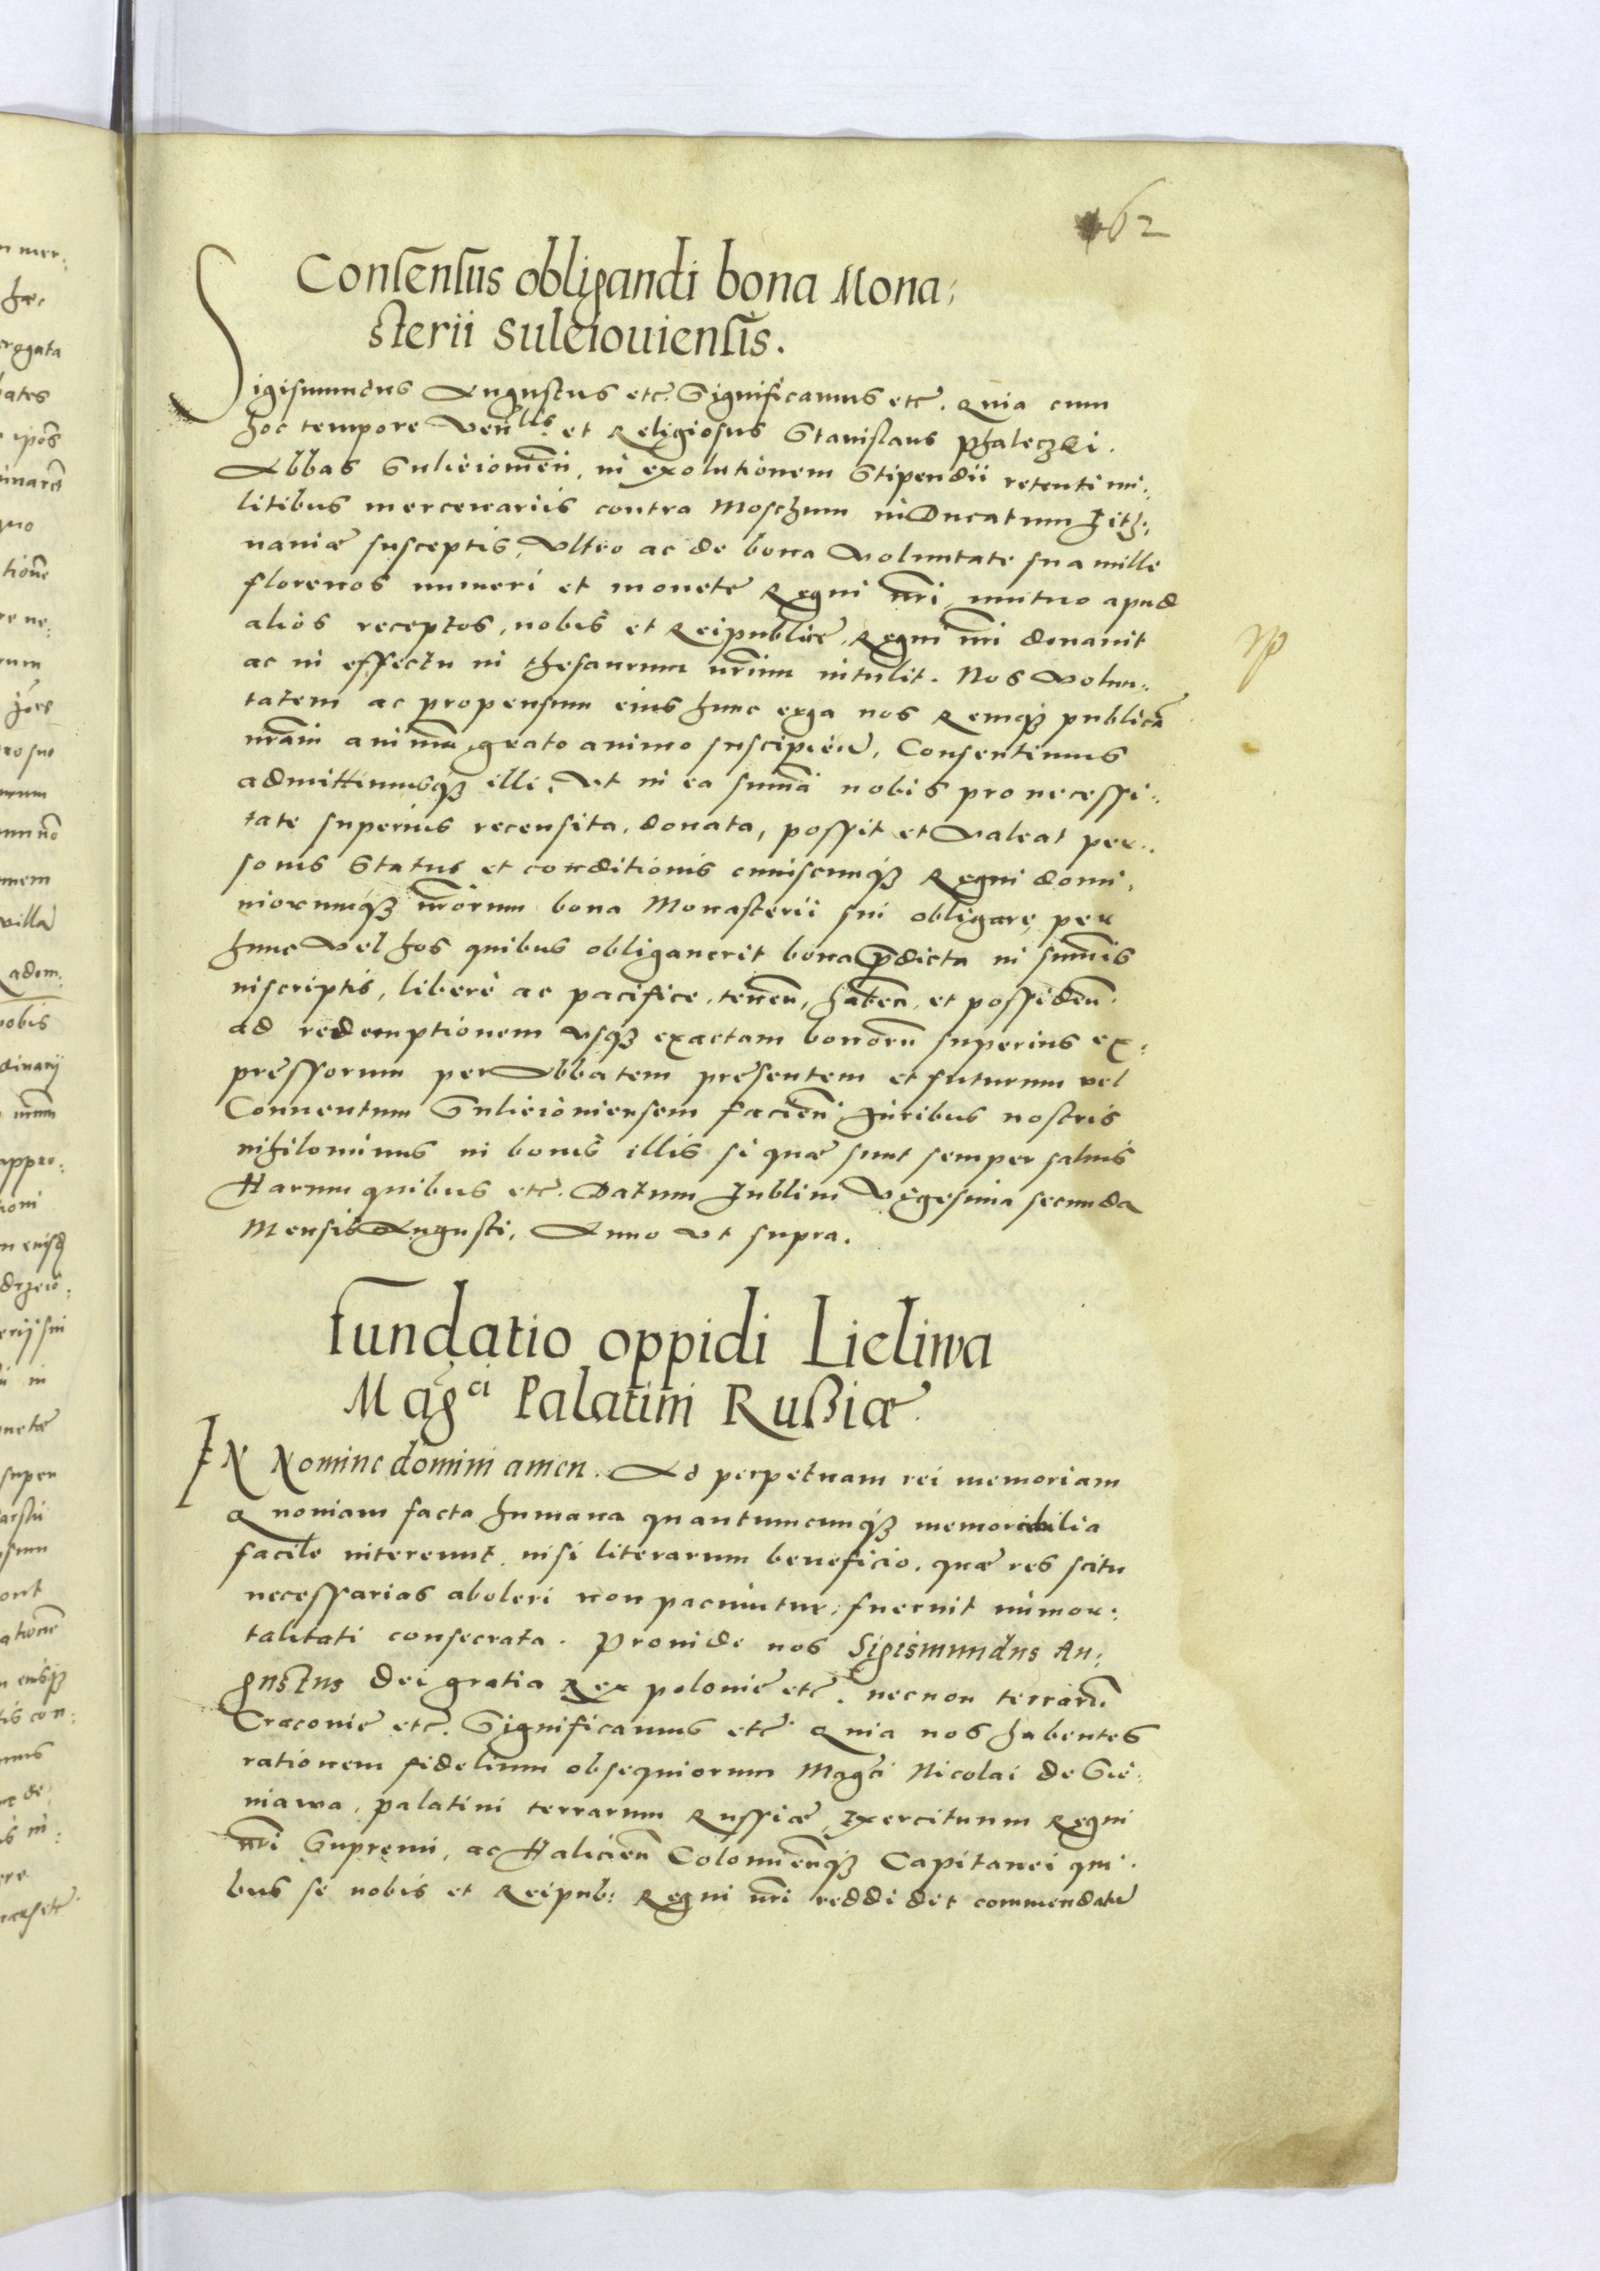 62
Consensus obligandi bona Mona:
sterii Suleiouiensis.
Sigismundus Augustus etc. Significamus etc. Quia cum
hoc tempore Venlis et Religiosus Stanislaus
Abbas Sulieiouien̄, in exolutionem Stipendii retenti mi:
litibus mercenariis contra Moschum in Ducatum Lith:
uaniæ susceptis, Vltro ac de bona Voluntate sua mille
florenos numeri et monete Regni nr̄i mutuo apud
alios receptos, nobis et Reipublicæ Regni nr̄i donauit
ac in effectu in thesaurum nr̄um intulit. Nos Volun:
tatem ac propensum eius hunc erga nos Remq́ȝ publicā
nr̄am animū grato animo suscipien̄, Consentimus
admittimusq́ȝ illi, Vt in ea sum̄a nobis pro necessi:
tate superius recensita, donata, possit et Valeat per:
sonis Status et conditionis cuiuscunq́ȝ Regni domi:
niorumq́ȝ nr̄orum bona Monasterii sui obligare, per
hunc Vel hos quibus obligauerit bona p̄dicta in sum̄is
inscriptis, libere ac pacifice, tenen̄, haben̄, et possiden̄
ad redemptionem vsq́ȝ exactam bonorū superius ex:
pressorum per Abbatem presentem et futurum vel
Conuentum Sulieiouiensem facien̄ Juribus nostris
nihilominus in bonis illis si quæ sunt semper saluis
Harum quibus etc. Datum Lublini Vigesima secunda
Mensis Augusti, Anno Vt supra.
Fundatio oppidi Lieliwa
Magci Palatini Rußiæ
IN Nomine domini amen. Ad perpetuam rei memoriam
Quoniam facta humana quantumcunq́ȝ memorabilia
facile intereunt, nisi literarum beneficio, quæ res scitu
necessarias aboleri non paciuntur, fuerint immor:
talitati consecrata. Proinde nos Sigismundus Au:
gustus Dei gratia Rex polonie etc. necnon terrarū
Cracouie etc. Significamus etc. Quia nos habentes
rationem fidelium obsequiorum Magci Nicolai de Sie:
niawa, palatini terrarum Russiæ, Exercituum Regni
nr̄i Supremi, ac Halicien̄ Colomien̄q́ȝ Capitanei qui:
bus se nobis et Reipub: Regni nr̄i reddidit commendatū